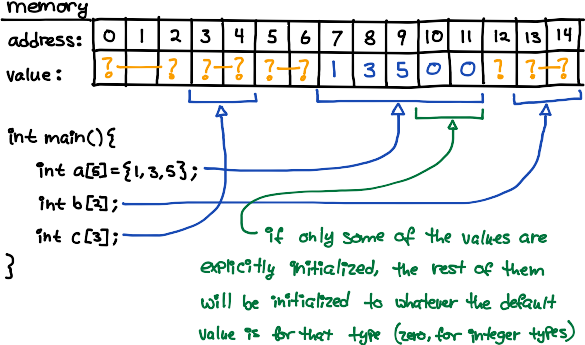 memory
address: 0 1 2 3 4 5 6 7 8 9 10 11 12 13 14
value: ? ? ? ? ? ? 1 3 5 0 0 ? ? ?
int main(){
int a[5]={1,3,5};
int b[2];
int c[3];
}
if only some of the values are
explicitly initialized, the rest of them
will be initialized to whatever the default
value is for that type (zero, for integer types)